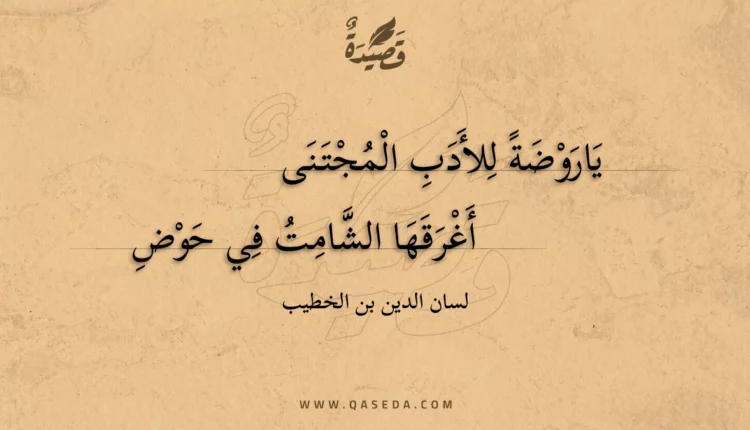 قَصِيدَةٌ
يَارَوْضَةً لِلأَدَبِ الْمُجْتَنَى
أَغْرَقَهَا الشَّامِتُ فِي حَوْضِ
لسان الدين بن الخطيب
WWW.QASEDA.COM